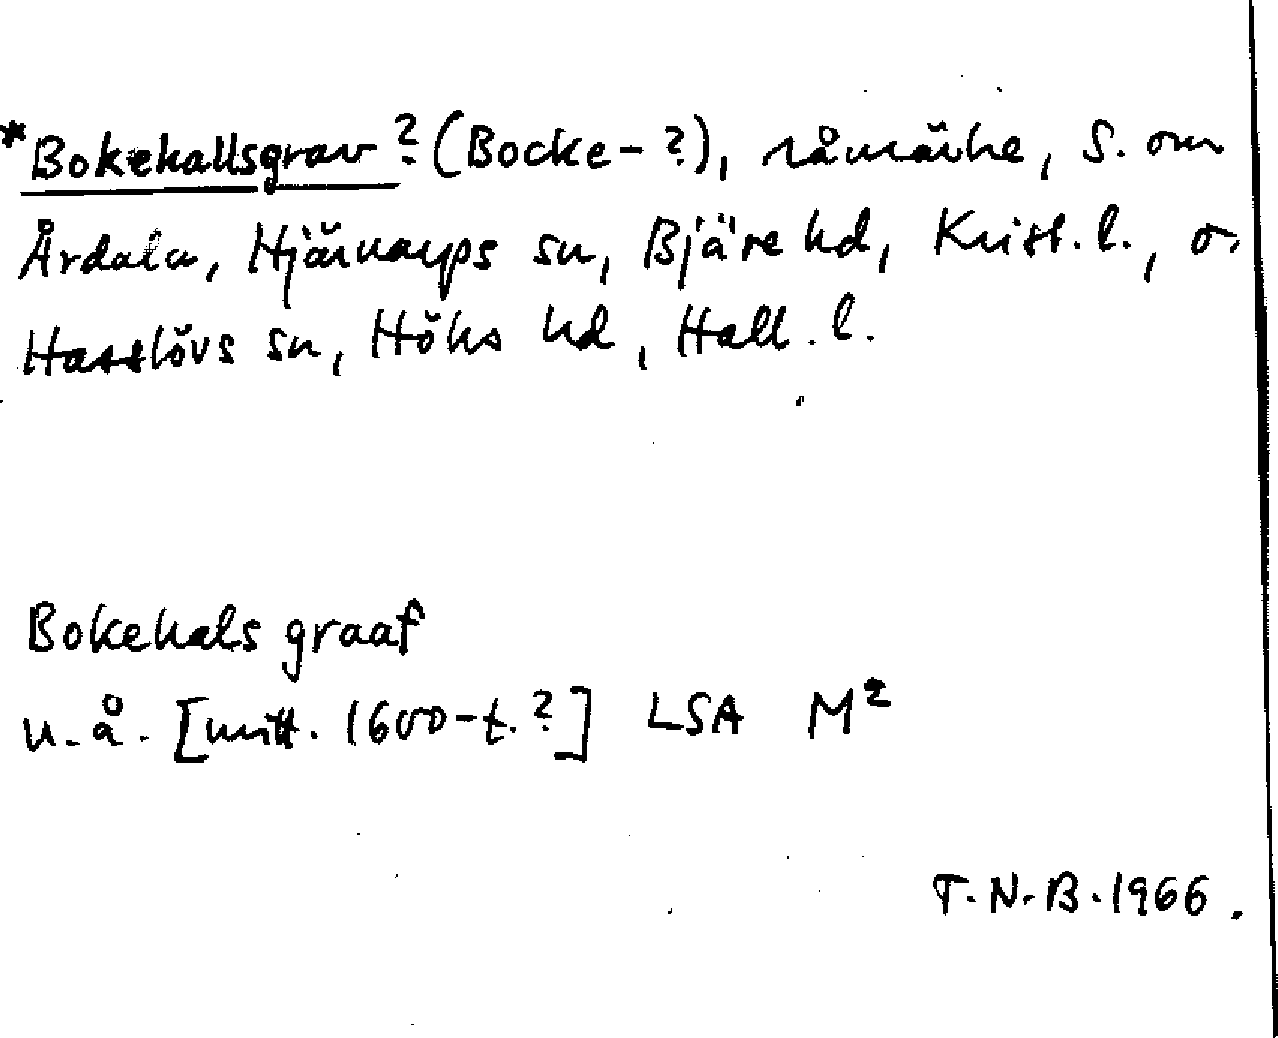 *Bokehallsgrav? (Bocke-?), råmärke, S. om
Årdala, Hjärnarps sn, Bjäre hd, Krist. l., o.
Hasslövs sn, Höks hd, Hall. l.
Bokehals graaf
u. å. [mitt. 1600-t.?] LSA M²
T. N. B. 1966.